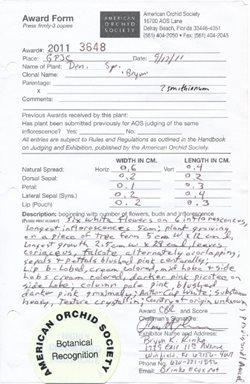 Award Form
Press firmly-3 copies
AMERICAN ORCHID SOCIETY
American Orchid Society
16700 AOS Lane
Delray Beach, Florida 33446-4351
(561) 404-2050 • Fax (561) 404-2045
Award# 2011 3648
Place: Date: 9/17/11
Name of Plant: Den. Sp.
Clonal Name: 'Bryon'
Parentage
X
? smithianum
Comments:
Previous Awards received by this plant:
Has plant been submitted previously for AOS judging of the same
inflorescence? Yes: No:
All entries are subject to Rules and Regulations as outlined in the Handbook
on Judging and Exhibition, published by the American Orchid Society.
WIDTH IN CM. LENGTH IN CM.
Horiz 0.6 Vert 0.4
Dorsal Sepal: 0.2 0.2
Petal: 0.1 0.3
Lateral Sepal (Syns.) 0.2 0.4
Lip (Pouch) 0.2 0.3
Description: beginning with number of flowers, buds and inflorescence
Six white flowers on 6 inflorescences,
longest inflorescence 5cm; plant growing
on a piece of 5cm W x 12 cm L
longest growth 2.5cm W x 28 cm L, leaves
coriaceous, falcate, alternately overlapping;
sepals & petals blushed pink centrally;
Lip bi-lobed, cream colored, mid lobe & side
lobes cream colored, darker pink picotee
side lobe; column pale pink, blushed
darker pink proximally; anther cap white; substance
heavy, texture crystallin; Country of origin unknown.
Award CBR and Score
Chairman Signature
Exhibitor Name and Address:
Bryon K. Rinke
Winfield
AMERICAN ORCHID SOCIETY
Botanical
Recognition